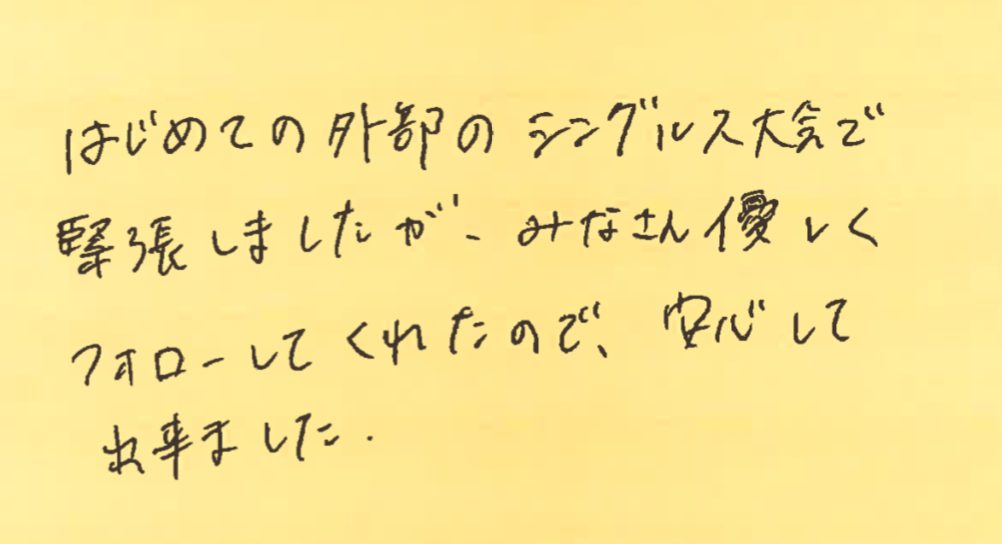 はじめての外部のシングルス大会で
緊張しましたが、みなさん優しく
フォローしてくれたので、安心して
出来ました.